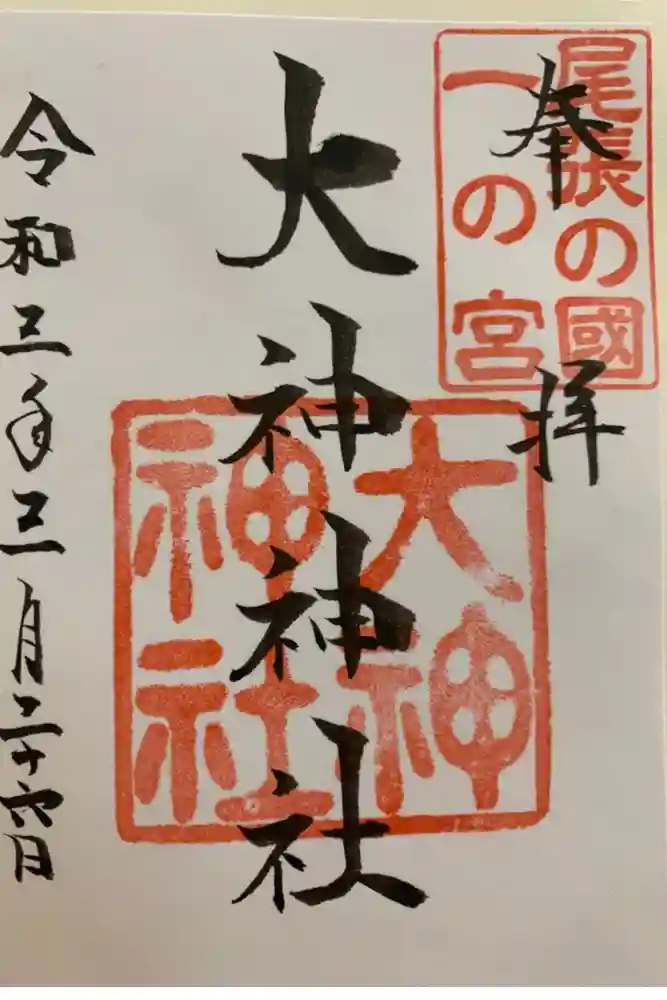 奉拝
尾張の國
一の宮
大神神神社
大神
神社
令和三年三月二十六日